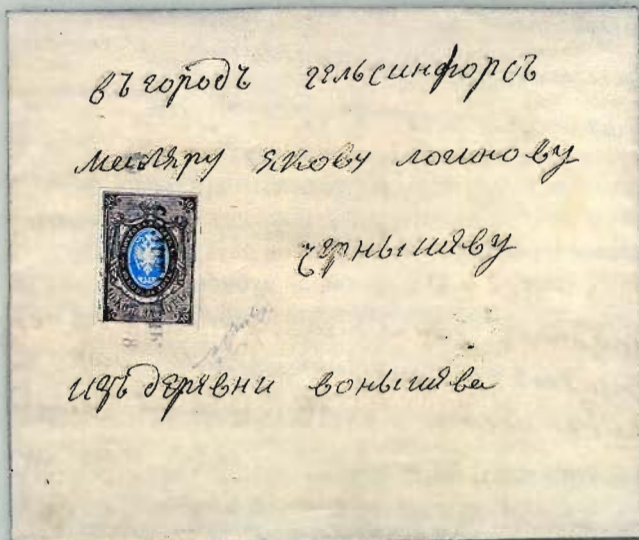 въ городъ гельсинфорсъ
маляру якову логинову
чернышяву
изъ дерявни вонышява